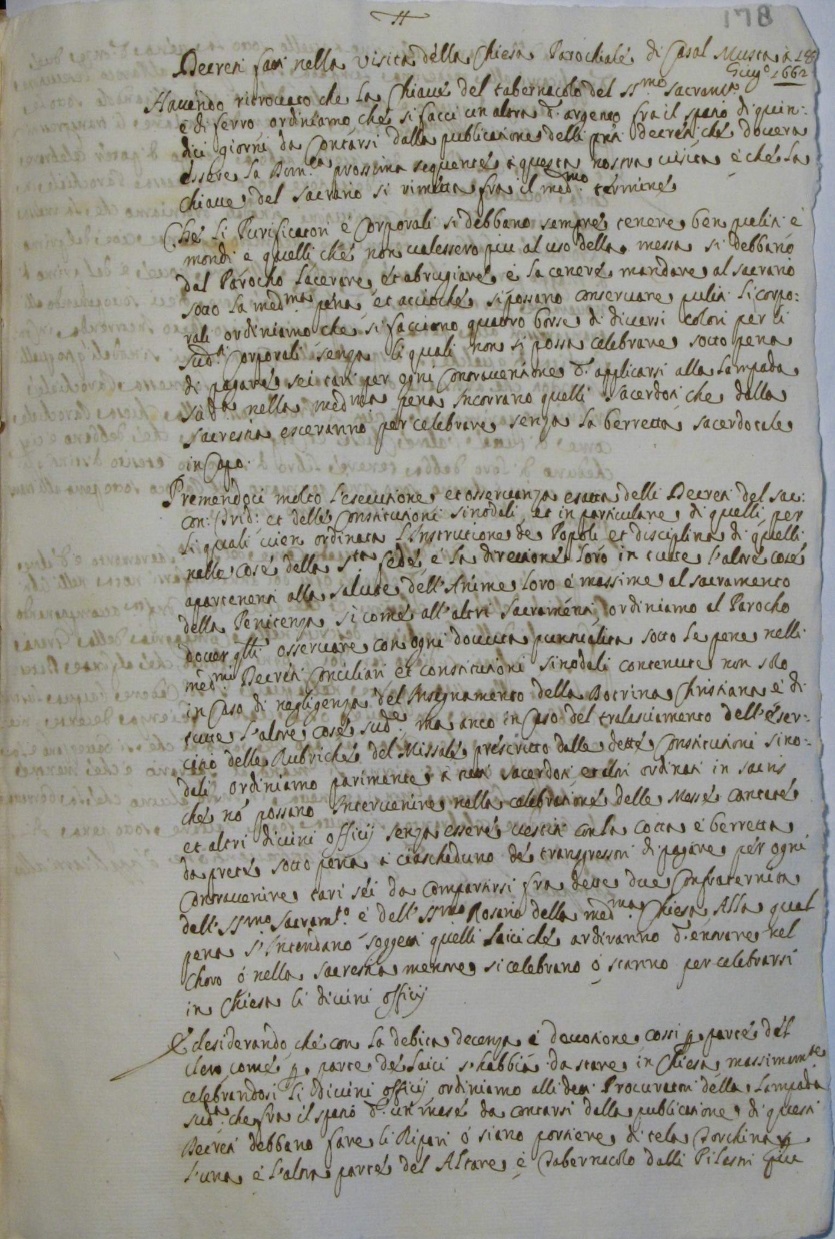 178
Decreti fatti nella visita della Chiesa Parochiale di Casal Musta a 28
Giug.º 1662
Havendo ritrovato che la Chiave del tabernacolo del SS.mo Sacramto
è di ferro ordiniamo che si facci un altra d'argento fra il spatio di quin:
dici giorni da Contarsi dalla publicatione delli Decreti che dovera
essere la Dom.ca prossima sequente à questa nostra visita e che la
Chiave del Sacrario si rimetta fra il med.mo termine
Che li Purificatori e Corporali si debbano sempre tenere ben puliti e
mondi e quelli che non valessero piu al uso della messa si debbano
dal Parocho lacerare, et abrugiare e la cenere mandare al sacrario
sotto la med.ma pena, et accioche si possano conservare puliti li corpo:
rali ordiniamo che si facciono quattro borse di diversi colori per li
sud.ti Corporali senza li quali non si possa celebrare sotto pena
di pagare sei tari per ogni Contraventione d'applicarsi alla Lampada
nella med.ma pena incorrano quelli Sacerdoti che dalla
sacrestia esceranno per celebrare senza la berretta sacerdotale
in Capo.
Premendoci molto l'esecutione et osservanza esatta delli Decreti del Sac:
Con: Trid: et delle Constitutioni sinodali, et in particulare di quelli per
li quali vien ordinata l'Instrutione de Popoli et disciplina di quelli
nelle cose della S.ta fede e la diretione loro in tutte l'altre cose
apartenenti alla salute dell'Anime loro e massime al sacramento
della Penitenza si come all'altri Sacramenti, ordiniamo al Parocho
dover osservare con ogni dovuta puntualita sotto le pene nelli
med.mi Decreti Conciliari et constitutioni sinodali contenute non solo
in Caso di negligenza del Insegnamento della Dottrina Christiana e di
tutte l'altre cose sud.e ma anco in Caso del tralasciamento dell'eser:
citio delle Rubriche del Missale prescritto dalle dette Constitutioni sino:
dali ordiniamo parimente a tutti sacerdoti, et altri ordinati in sacris
che nō possano intervenire nella celebratione delle Messe Cantate
et altri divini officij senza essere vestiti con la Cotta e berretta
da prete sotto pena à ciascheduno de transgressori di pagare per ogni
Contravenire tari sei da Compartirsi fra dette due Confraternita
dell'SS.mo Sacram.to e dell'SS.mo Rosario della med.ma Chiesa Alla qual
pena s'Intendano soggetti quelli laici che ardiranno d'entrare nel
Choro ó nella sacrestia mentre si celebrano ó starino per celebrarsi
in Chiesa li divini officij
E desiderando che con la debita decenza e devotione cossi p. parte del
Clero come p. parte de Laici s'habbia da stare in Chiesa massimam.te
celebrandosi li divini officij ordiniamo alli detti Procuratori della Lampada
sud.a che fra il spatio d'un mese da contarsi dalla publicatione di questi
Decreti debbano fare li Ripari ó siano portiere di tela Torchina
l'una e l'altra parte del Altare e Tabernacolo dalli Pilastri